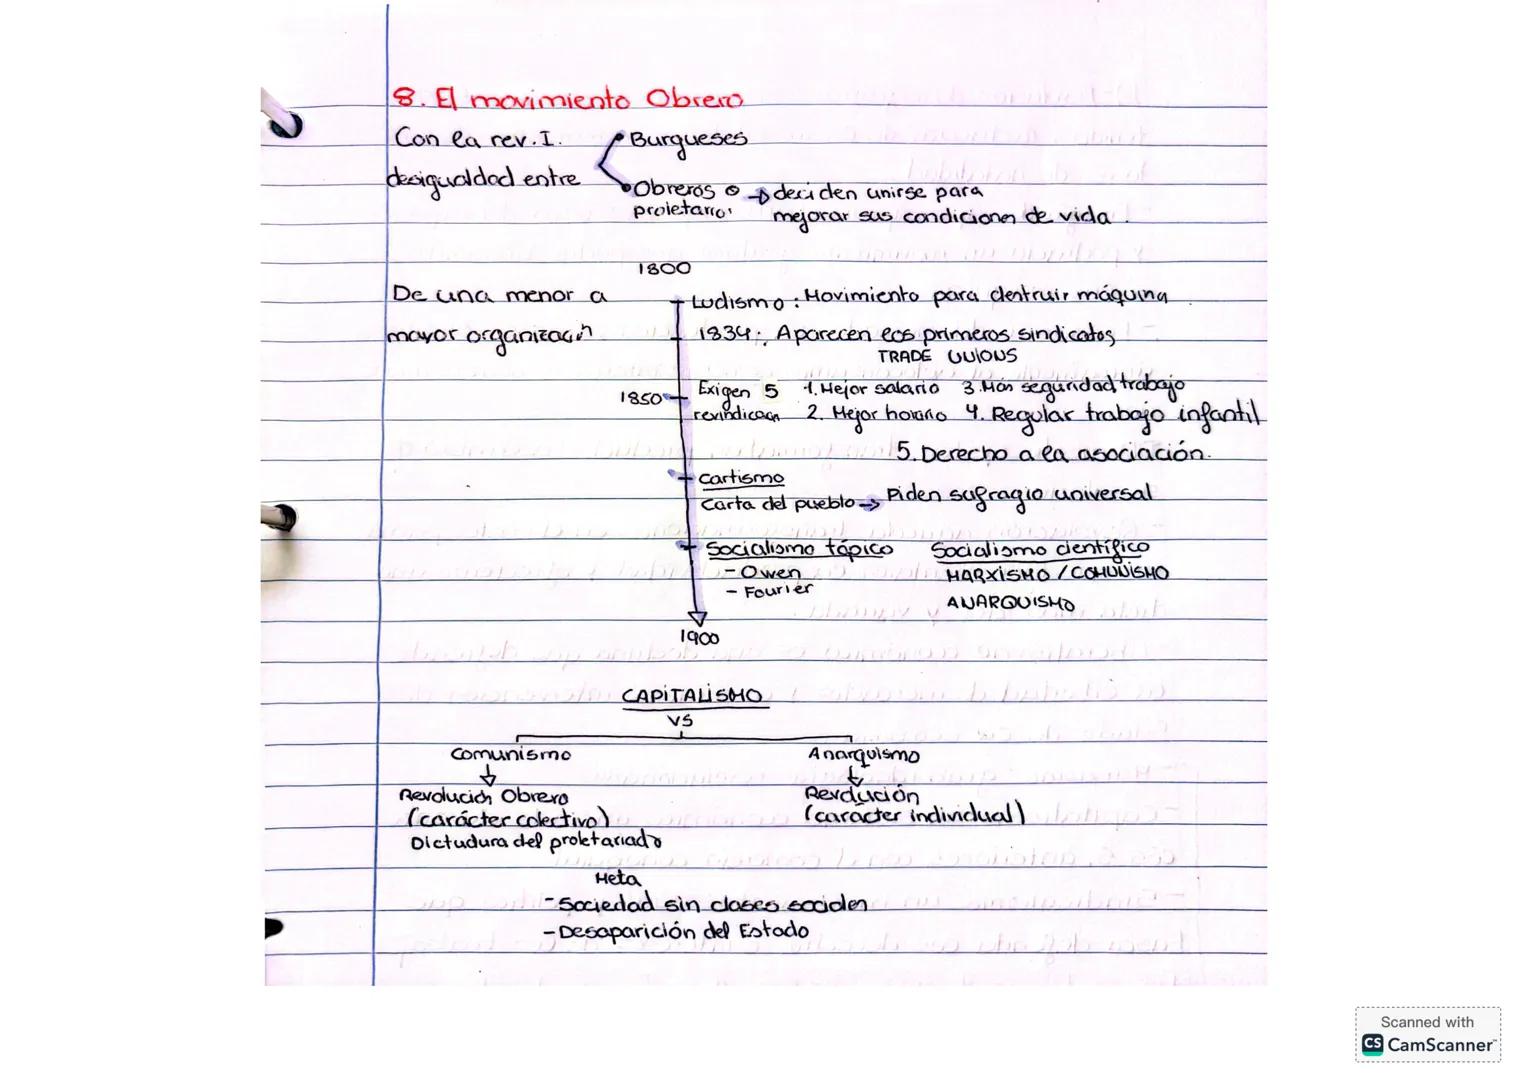 8. El movimiento Obrero
Con la rev. I.
desigualdad entre
Burgueses
Obreros o
proletarios
deciden unirse para
mejorar sus condiciones de vida.
1800
De una menor a
mayor organización
Ludismo: Movimiento para destruir máquina
1834: Aparecen los primeros sindicatos
TRADE UNIONS
1850
Exigen 5
revindicacn
1. Mejor salario 3. Más seguridad trabajo
2. Mejor horario 4. Regular trabajo infantil
5. Derecho a la asociación.
Cartismo
Carta del pueblo → Piden sufragio universal
Socialismo tópico
- Owen
- Fourier
Socialismo científico
MARXISMO / COMUNISMO
ANARQUISMO
1900
CAPITALISMO
VS
Comunismo
Revolución Obrera
(carácter colectivo)
Dictudura del proletariado
Anarquismo
Revolución
(carácter individual)
Meta
- Sociedad sin clases sociales
- Desaparición del Estado
Scanned with
CS CamScanner